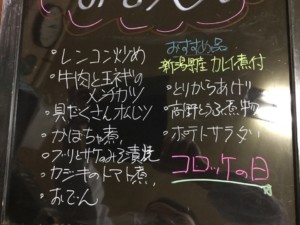 ・レンコン炒め
・牛肉と玉ねぎの
メンチカツ
・具だくさんオムレツ
・かぼちゃ煮
・ブリとサケのみそ漬焼
・カジキのトマト煮
・おでん
おすすめ品
新潟県産 カレイ煮付
・とりからあげ
・高野とうふ煮物
・ポテトサラダ
コロッケの日